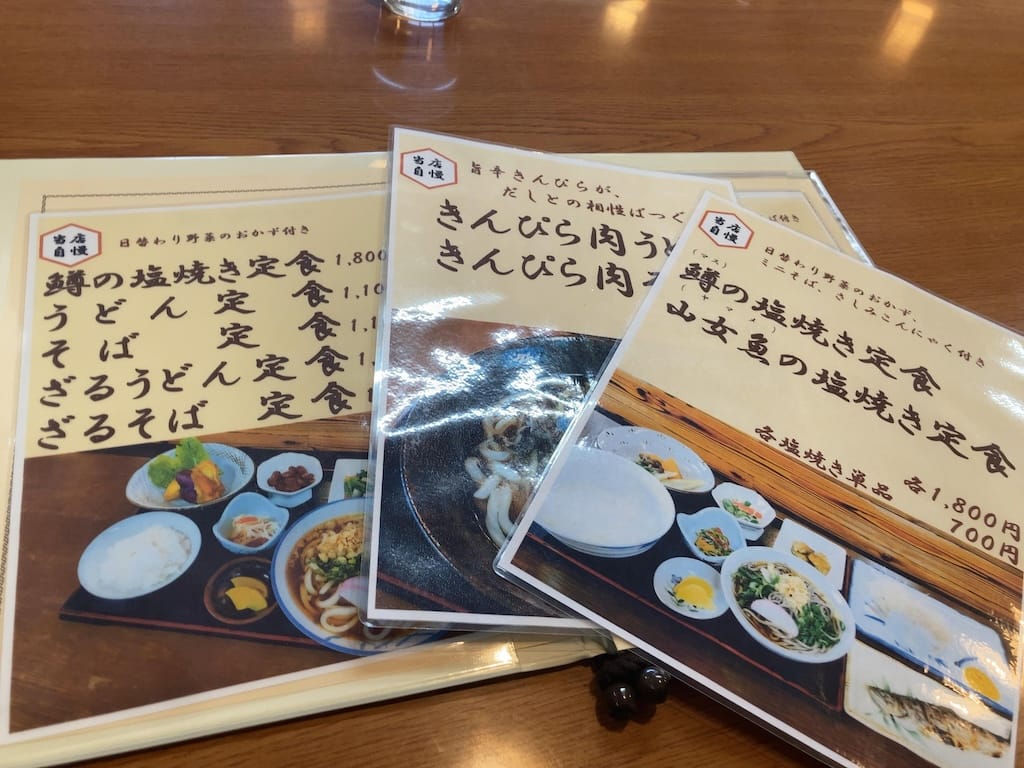 当店
自慢
日替わり野菜のおかず付き
鱒の塩焼き定食 1,800
うどん定食
そば定食
ざるうどん定食
ざるそば定食
当店
自慢
旨辛きんぴらが、
だしとの相性ばつ
きんぴら肉う
きんぴら肉
ば付き
当店
自慢
日替わり野菜のおかず、
ミニそば、さしみこんにゃく付き
(マス)
鱒の塩焼き定食
(ヤマメ)
山女魚の塩焼き定食
各1,800円
各塩焼き単品 700円